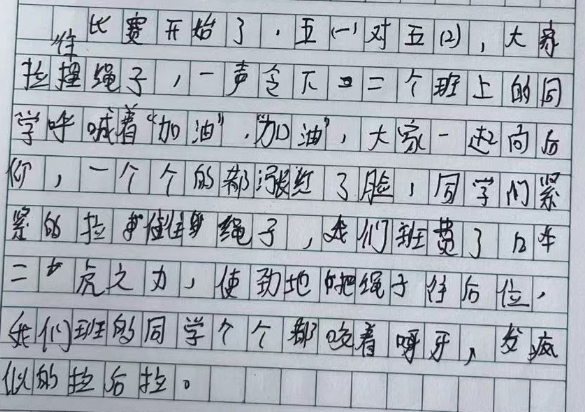 比赛开始了，五(一)对五(2)，大家
拉握住绳子，一声令下二个班上的同
学呼喊着“加油”，“加油”，大家一起向后
仰，一个个的都涨红了脸，同学们紧
紧的拉住绳子，我们班费了
二虎之力，使劲地把绳子往后位，
我们班的同学个个都咬着呀牙，发疯
似的拉后拉。